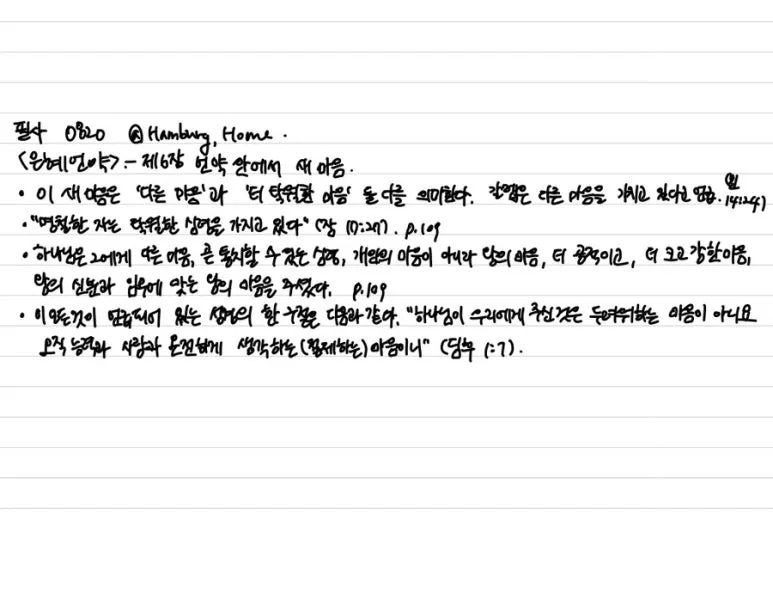 필사 0820 @Hamburg, Home.
<은혜언약> - 제6장 언약 안에서 새 마음.
• 이 새 마음은 '다른 마음'과 '더 탁월한 마음' 둘 다를 의미한다. 갈렙은 다른 마음을 가지고 있다고 언급. 민 14:24)
• "명철한 자는 탁월한 심령을 가지고 있다" (잠 17:27). p.109
• 하나님은 그에게 다른 마음, 곧 통치할 수 있는 심령, 개인의 마음이 아니라 왕의 마음, 더 공적이고, 더 크고 강한 마음,
왕의 신분과 임무에 맞는 왕의 마음을 주셨다. p.109
• 이 모든것이 언급되어 있는 성경의 한 구절은 다음과 같다. "하나님이 우리에게 주신 것은 두려워하는 마음이 아니요
오직 능력과 사랑과 온전하게 생각하는(절제하는)마음이니" (딤후 1:7).